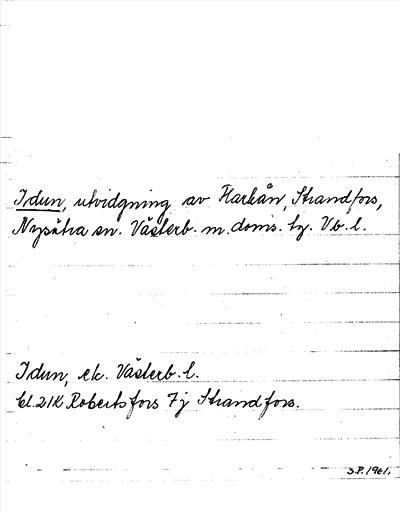 Idun, utvidgning av Harkån, Strandfors,
Nysätra sn. Västerb. m. doms. tg. Vb. l.
Idun, ek. Västerb. l.
bl. 21K Robertsfors 7j Strandfors.
S.P. 1961.